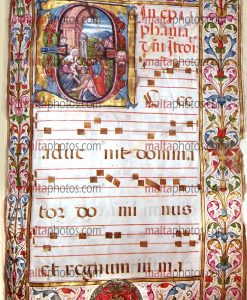 In epi
phania
Introi
E cce
adue nit domina
tor do mi nus
et regnum in ma
maltaphotos.com